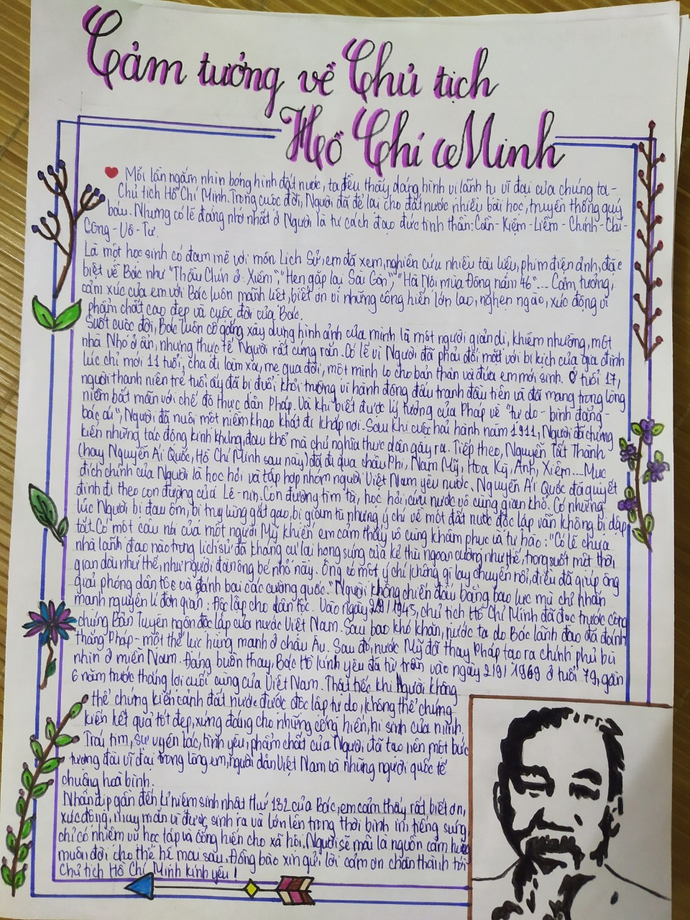 Cảm tưởng về Chủ tịch
Hồ Chí Minh
Mỗi lần ngắm nhìn bóng hình đất nước, ta đều thấy dáng hình vị lãnh tụ vĩ đại của chúng ta -
Chủ tịch Hồ Chí Minh. Trong cuộc đời, Người đã để lại cho đất nước nhiều bài học, truyền thống quý
báu. Nhưng có lẽ đáng nhớ nhất ở Người là tư cách đạo đức tinh thần: Cần - Kiệm - Liêm - Chính - Chí -
Công - Vô - Tư.
Là một học sinh có đam mê với môn Lịch Sử, em đã xem, nghiên cứu nhiều tài liệu, phim điện ảnh, đặc
biệt về Bác như "Thầu Chín ở Xiêm", "Hẹn gặp lại Sài Gòn", "Hà Nội mùa Đông năm 46"... Cảm tưởng,
cảm xúc của em với Bác luôn mãnh liệt, biết ơn vì những cống hiến lớn lao, nghẹn ngào, xúc động vì
phẩm chất cao đẹp và cuộc đời của Bác.
Suốt cuộc đời, Bác luôn cố gắng xây dựng hình ảnh của mình là một người giản dị, khiêm nhường, một
nhà Nho ở ẩn, nhưng thực tế Người rất cứng rắn. Có lẽ vì Người đã phải đối mặt với bi kịch của gia đình
lúc chỉ mới 11 tuổi, cha đi làm xa, mẹ qua đời, một mình lo cho bản thân và đứa em mới sinh. Ở tuổi 17,
người thanh niên trẻ tuổi ấy đã bị đuổi khỏi trường vì hành động đấu tranh đầu tiên và đã mang trong lòng
niềm bất mãn với chế độ thực dân Pháp. Và khi biết được lý tưởng của Pháp về "tự do - bình đẳng -
bác ái", Người đã nuôi một niềm khao khát đi khắp nơi. Sau khi cuộc hải hành năm 1911, Người đã chứng
kiến những tác động kinh khủng, đau khổ mà chủ nghĩa thực dân gây ra. Tiếp theo, Nguyễn Tất Thành
(hay Nguyễn Ái Quốc, Hồ Chí Minh sau này) đã đi qua châu Phi, Nam Mỹ, Hoa Kỳ, Anh, Xiêm... Mục
đích chính của Người là học hỏi và tập hợp nhóm người Việt Nam yêu nước. Nguyễn Ái Quốc đã quyết
định đi theo con đường của Lê-nin. Con đường tìm tòi, học hỏi, cứu nước vô cùng gian khổ. Có những
lúc Người bị đau ốm, bị truy lùng gắt gao, bị giam tù nhưng ý chí về một đất nước độc lập vẫn không bị dập
tắt. Có một câu nói của một người Mỹ khiến em cảm thấy vô cùng khâm phục và tự hào: "Có lẽ chưa
nhà lãnh đạo nào trong lịch sử đã kháng cự lại họng súng của kẻ thù ngoan cường như thế, trong suốt một thời
gian dài như thế, như người đàn ông bé nhỏ này. Ông có một ý chí không gì lay chuyển nổi, điều đã giúp ông
giải phóng dân tộc và đánh bại các cường quốc." Người không chiến đấu bằng bạo lực mà chỉ nhấn
mạnh nguyên lí đơn giản: độc lập cho dân tộc. Vào ngày 2/9/1945, chủ tịch Hồ Chí Minh đã đọc trước công
chúng Bản Tuyên ngôn độc lập của nước Việt Nam. Sau bao khó khăn, nước ta do Bác lãnh đạo đã đánh
thắng Pháp - một thế lực hùng mạnh ở châu Âu. Sau đó, nước Mỹ đã thay Pháp tạo ra chính phủ bù
nhìn ở miền Nam. Đáng buồn thay, Bác Hồ kính yêu đã từ trần vào ngày 2/9/1969 ở tuổi 79, gần
6 năm trước thắng lợi cuối cùng của Việt Nam. Thật tiếc khi Người không
thể chứng kiến cảnh đất nước được độc lập tự do, không thể chứng
kiến kết quả tốt đẹp, xứng đáng cho những cống hiến, hi sinh của mình.
Trái tim, sự uyên bác, tình yêu, phẩm chất của Người, đã tạo nên một bức
tượng đài vĩ đại trong lòng em, người dân Việt Nam và những người quốc tế
chuộng hoà bình.
Nhân dịp gần đến kỉ niệm sinh nhật thứ 132 của Bác, em cảm thấy rất biết ơn,
xúc động, may mắn vì được sinh ra và lớn lên trong thời bình im tiếng súng,
chỉ có nhiệm vụ học tập và cống hiến cho xã hội. Người sẽ mãi là nguồn cảm hứng
muôn đời cho thế hệ mai sau. Đồng bào xin gửi lời cảm ơn chân thành tới
Chủ tịch Hồ Chí Minh kính yêu!